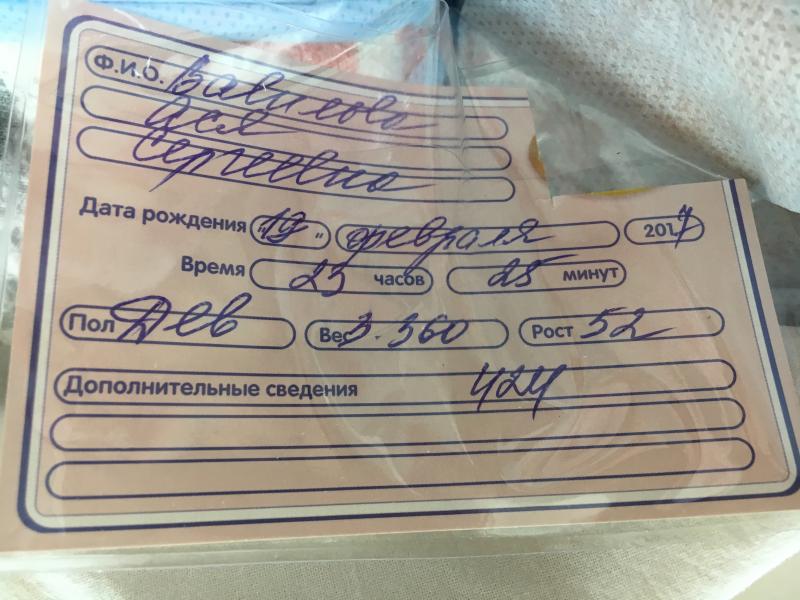 Ф.И.О. Вавилова
Ася
Сергеевна
Дата рождения "19" февраля 2017
Время 23 часов 25 минут
Пол Дев Вес 3.360 Рост 52
Дополнительные сведения